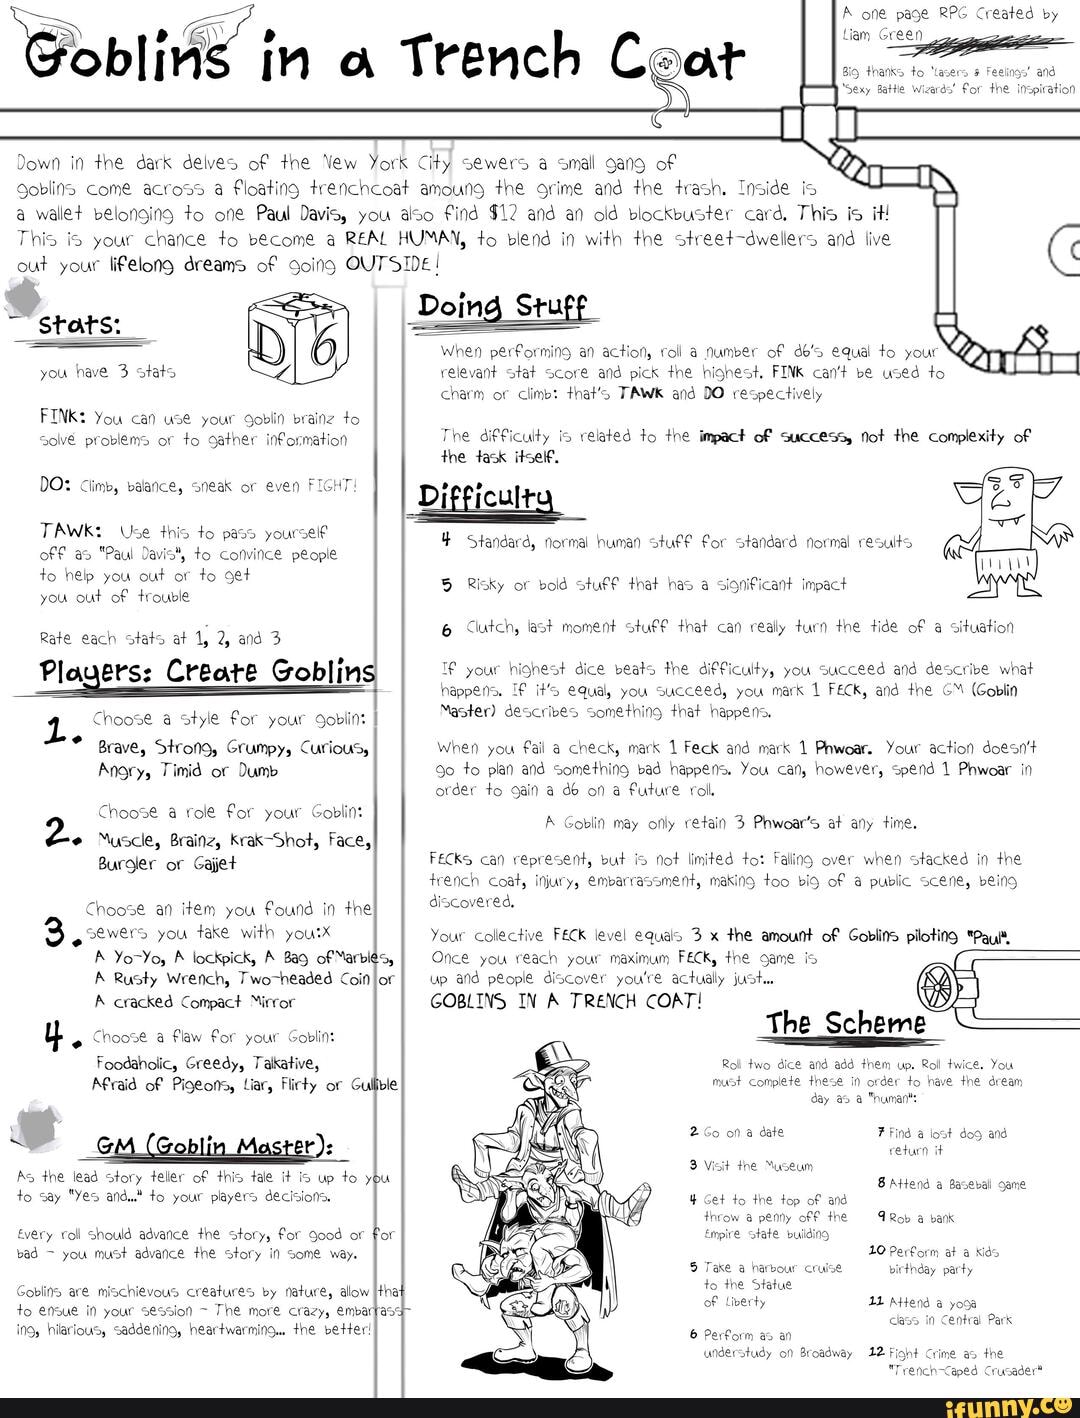 Goblins in a Trench Coat
A one page RPG Created by
Liam Green
Big thanks to 'Lasers & Feelings' and
'Sexy Battle Wizards' for the inspiration
Down in the dark delves of the New York City sewers a small gang of
goblins come across a floating trenchcoat amoung the grime and the trash. Inside is
a wallet belonging to one Paul Davis, you also find $12 and an old blockbuster card. This is it!
This is your chance to become a REAL HUMAN, to blend in with the street-dwellers and live
out your lifelong dreams of going OUTSIDE!
Stats:
D 6
you have 3 stats
FINK: You can use your goblin brainz to
solve problems or to gather information
DO: Climb, balance, sneak or even FIGHT!
TAWK: Use this to pass yourself
off as "Paul Davis", to convince people
to help you out or to get
you out of trouble
Rate each stats at 1, 2, and 3
Players: Create Goblins
1. Choose a style for your goblin:
Brave, Strong, Grumpy, Curious,
Angry, Timid or Dumb
2. Choose a role for your Goblin:
Muscle, Brainz, Krak-Shot, Face,
Burgler or Gajjet
3. Choose an item you found in the
sewers you take with you:X
A Yo-Yo, A lockpick, A Bag ofMarbles,
A Rusty Wrench, Two-headed Coin or
A cracked Compact Mirror
4. Choose a flaw for your Goblin:
Foodaholic, Greedy, Talkative,
Afraid of Pigeons, Liar, Flirty or Gullible
GM (Goblin Master):
As the lead story teller of this tale it is up to you
to say "Yes and..." to your players decisions.
Every roll should advance the story, for good or for
bad - you must advance the story in some way.
Goblins are mischievous creatures by nature, allow that
to ensue in your session - The more crazy, embarrass-
ing, hilarious, saddening, heartwarming... the better!
Doing Stuff
When performing an action, roll a number of d6's equal to your
relevant stat score and pick the highest. FINK can't be used to
charm or climb: that's TAWK and DO respectively
The difficulty is related to the impact of success, not the complexity of
the task itself.
Difficulty
4 Standard, normal human stuff for standard normal results
5 Risky or bold stuff that has a significant impact
6 Clutch, last moment stuff that can really turn the tide of a situation
If your highest dice beats the difficulty, you succeed and describe what
happens. If it's equal, you succeed, you mark 1 FECK, and the GM (Goblin
Master) describes something that happens.
When you fail a check, mark 1 Feck and mark 1 Phwoar. Your action doesn't
go to plan and something bad happens. You can, however, spend 1 Phwoar in
order to gain a d6 on a future roll.
A Goblin may only retain 3 Phwoar's at any time.
FECKs can represent, but is not limited to: Falling over when stacked in the
trench coat, injury, embarrassment, making too big of a public scene, being
discovered.
Your collective FECK level equals 3 x the amount of Goblins piloting "Paul".
Once you reach your maximum FECK, the game is
up and people discover you're actually just...
GOBLINS IN A TRENCH COAT!
The Scheme
Roll two dice and add them up. Roll twice. You
must complete these in order to have the dream
day as a "human":
2 Go on a date
3 Visit the Museum
4 Get to the top of and
throw a penny off the
Empire state building
5 Take a harbour cruise
to the Statue
of Liberty
6 Perform as an
understudy on Broadway
7 Find a lost dog and
return it
8 Attend a Baseball game
9 Rob a bank
10 Perform at a kids
birthday party
11 Attend a yoga
class in Central Park
12 Fight Crime as the
"Trench-Caped Crusader"
ifunny.co